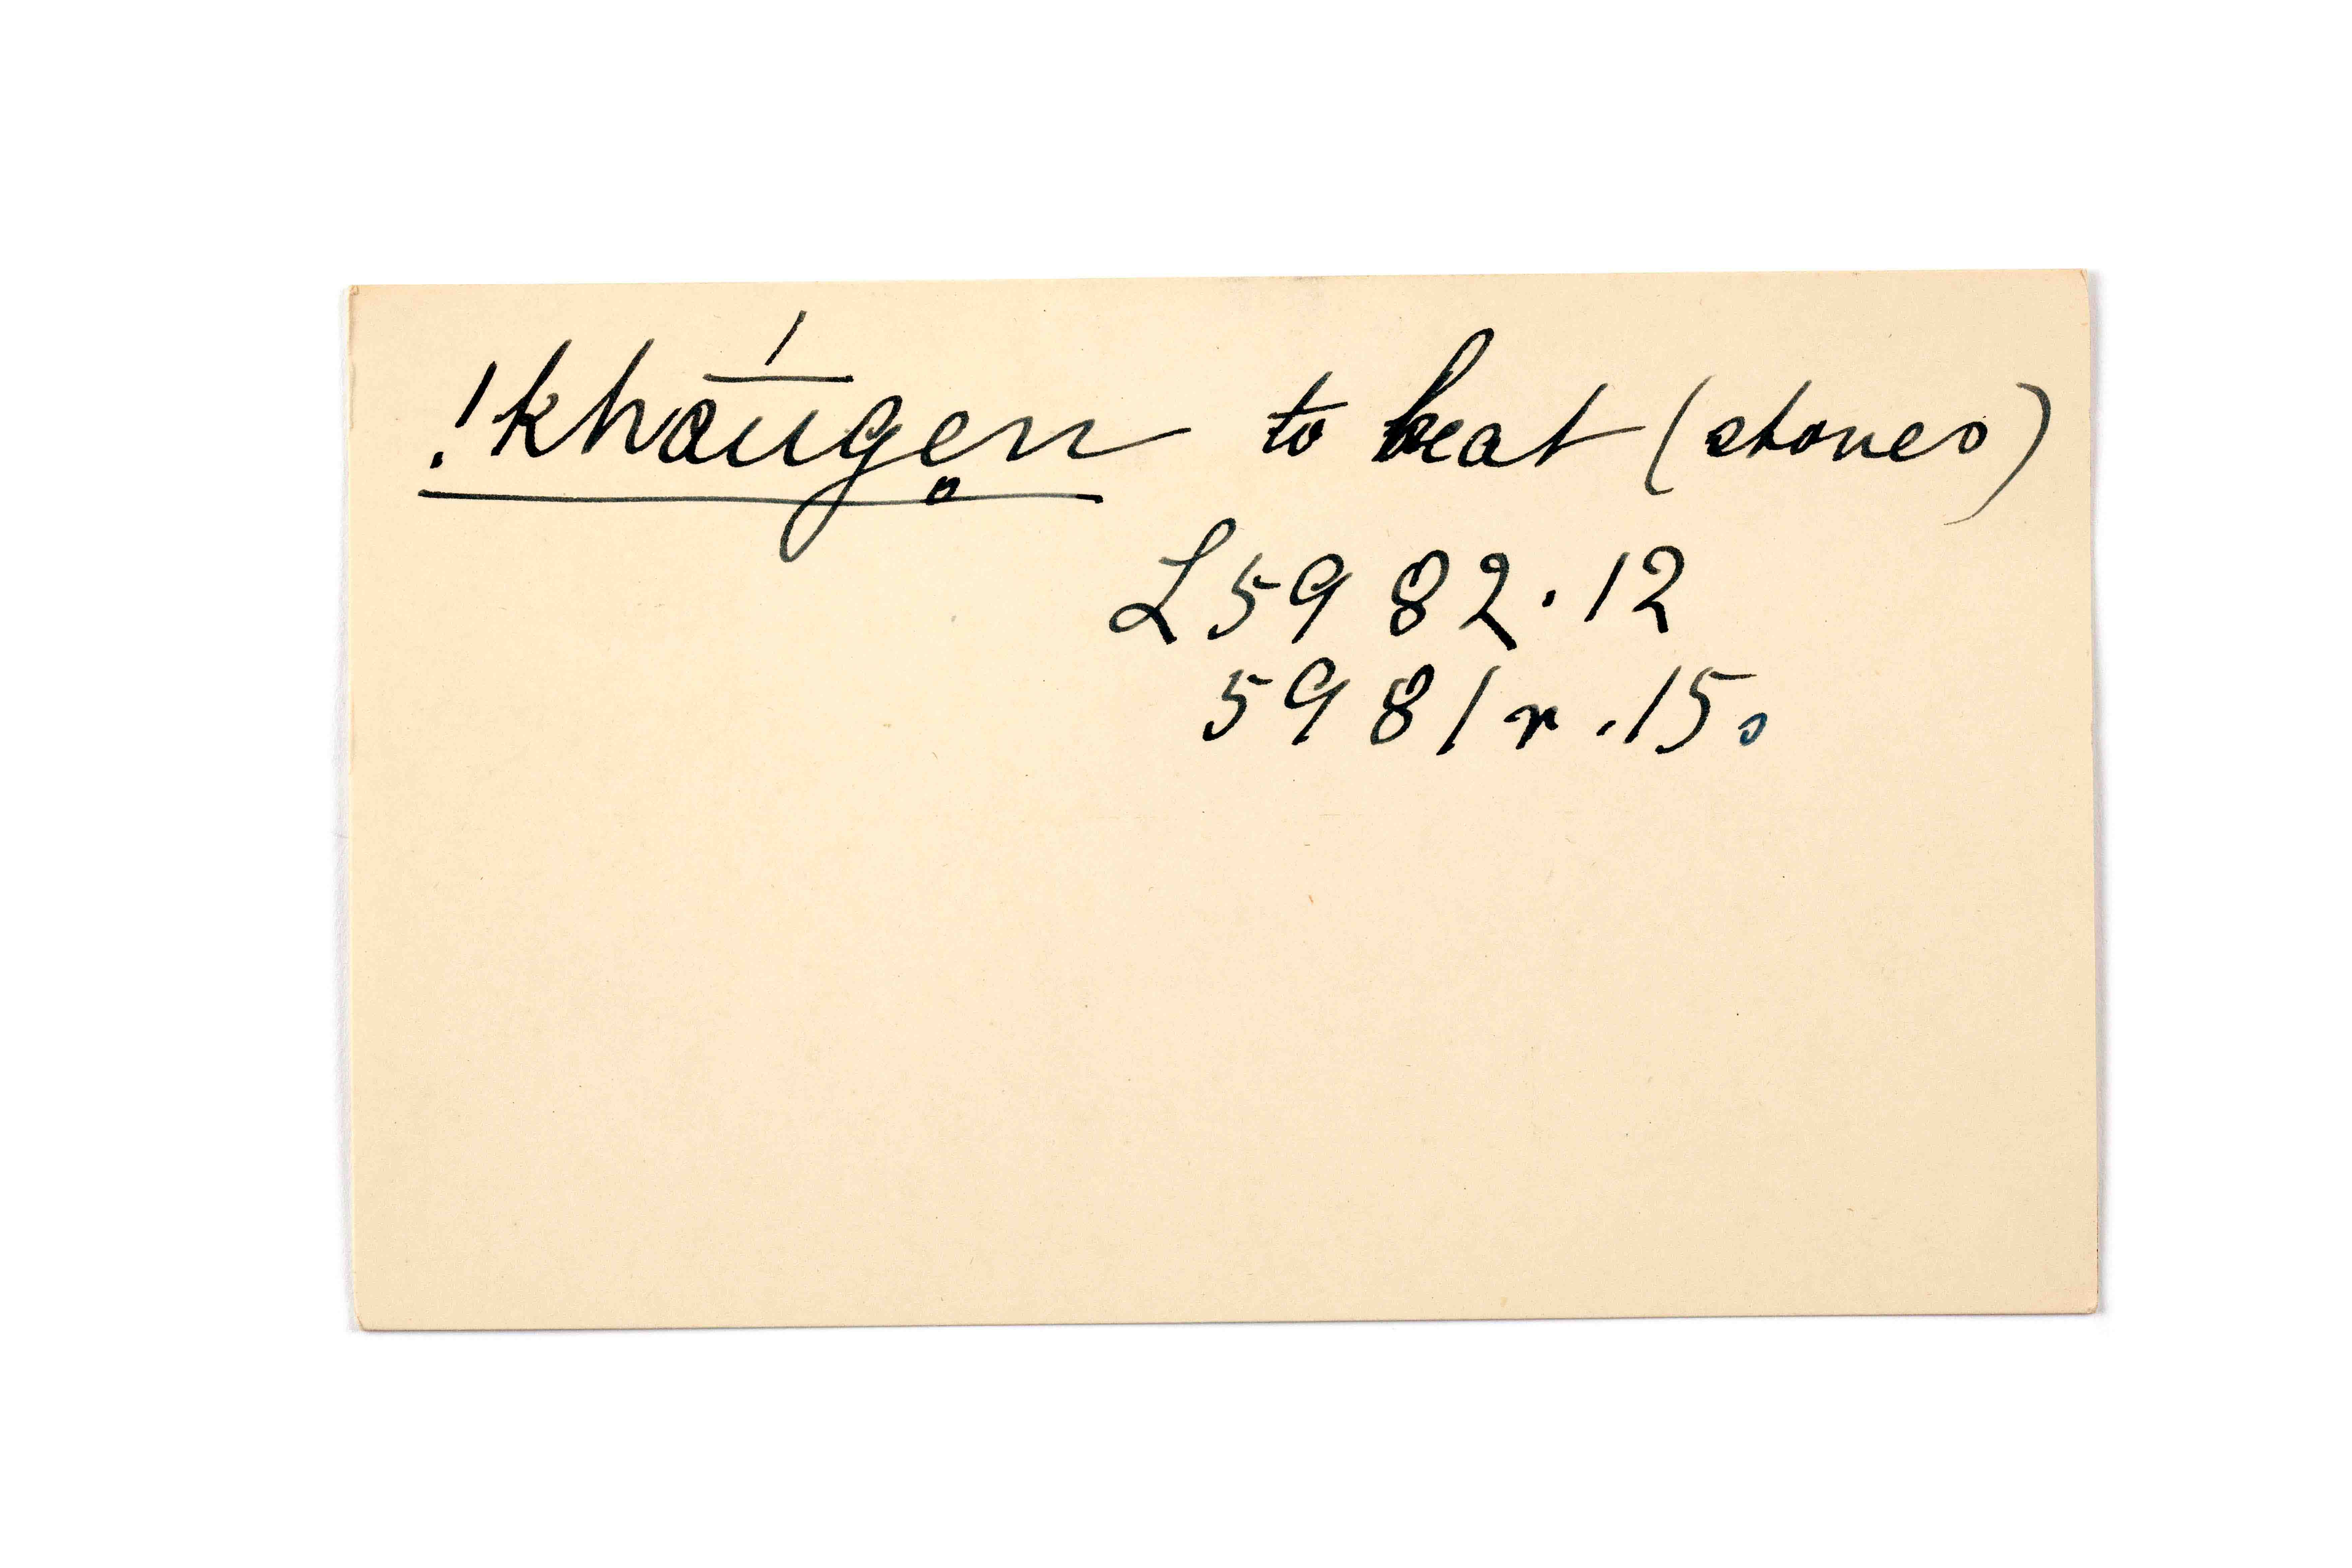 !kháū́gen̥ to beat (stones)
L5982.12
5981r.15.